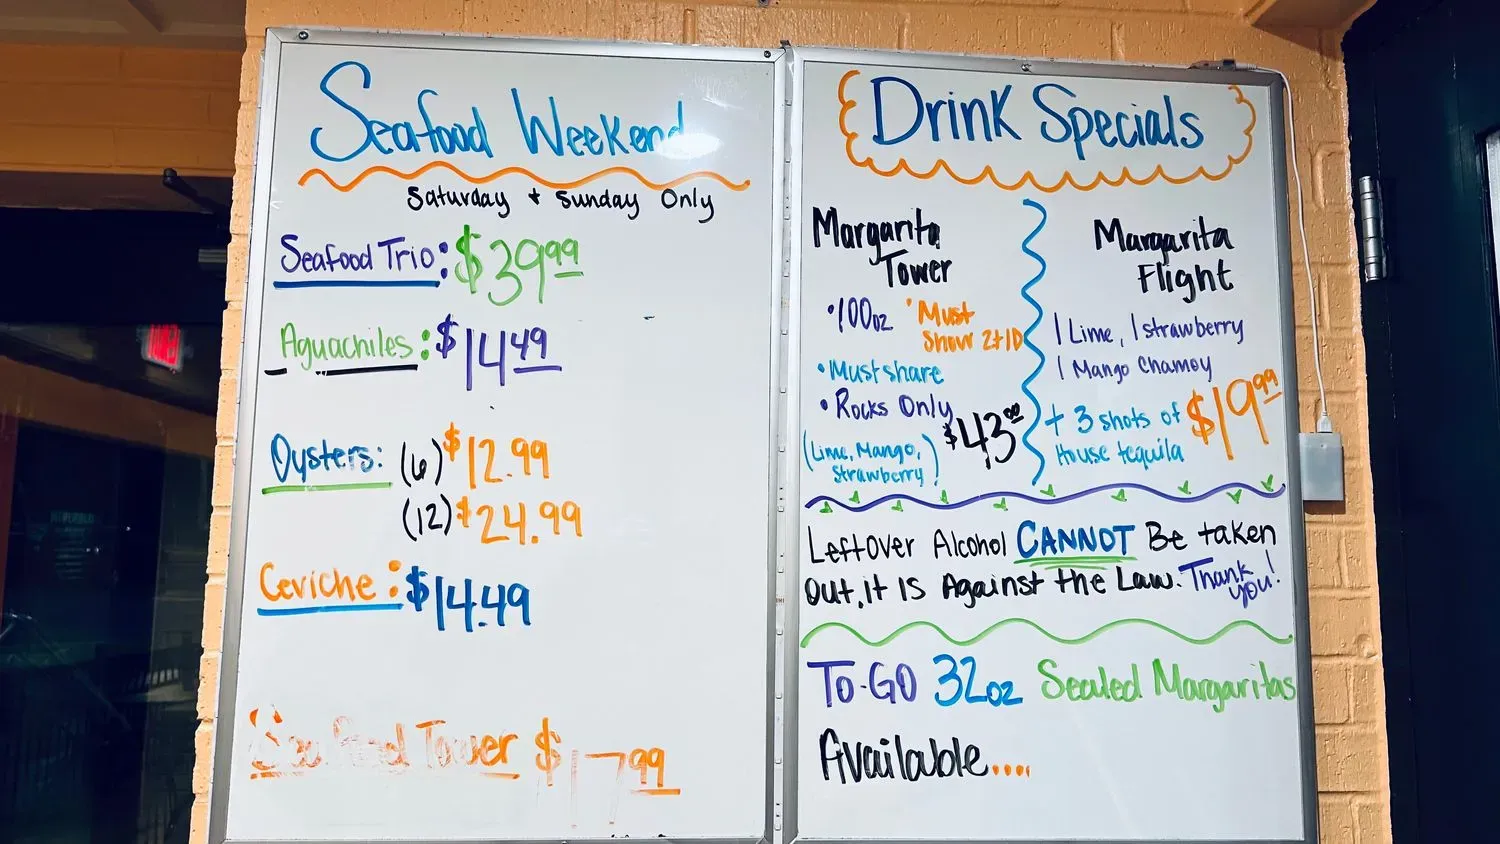 Seafood Weekend
Saturday + Sunday Only
Seafood Trio: $39.99
Aguachiles: $14.49
Oysters: (6) $12.99
(12) $24.99
Ceviche: $14.49
Seafood Tower $17.99
Drink Specials
Margarita
Tower
•100oz
•Must
Show 2+ID
•Must share
•Rocks Only
(Lime, Mango,
Strawberry)
$43.00
Margarita
Flight
1 Lime, 1 strawberry
1 Mango Chamoy
+ 3 shots of
House tequila
$19.99
Leftover Alcohol CANNOT Be taken
Out, it Is Against the Law. Thank
you!
TO-GO 32oz Sealed Margaritas
Available....